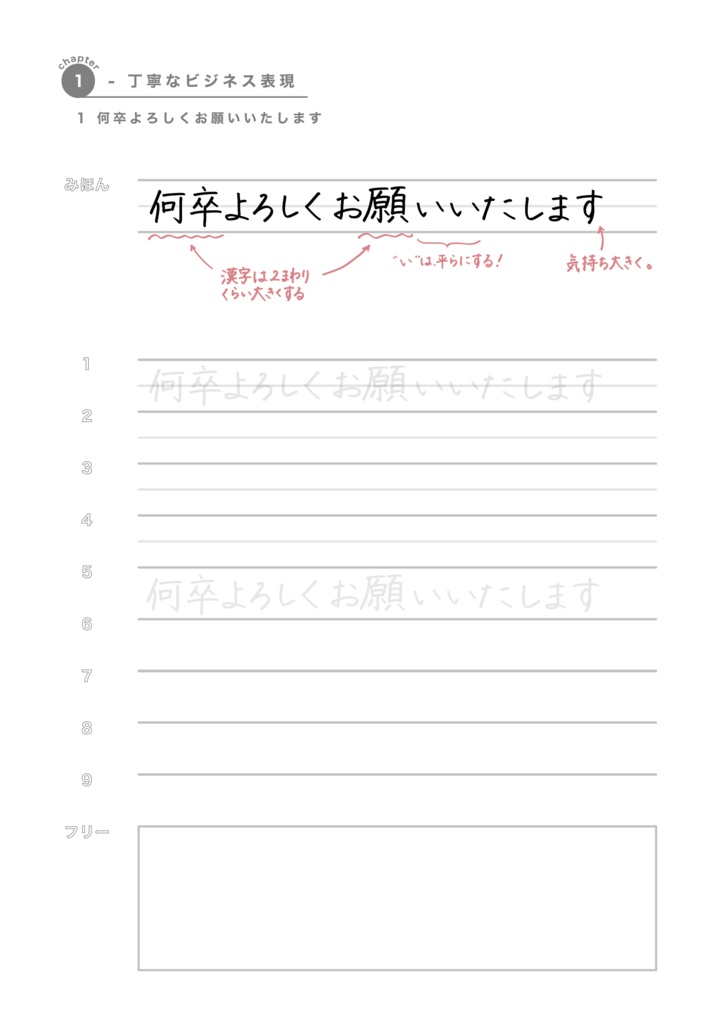 chapter
1 - 丁寧なビジネス表現
1 何卒よろしくお願いいたします
みほん
何卒よろしくお願いいたします
漢字は2まわり
くらい大きくする
"い"は、平らにする!
気持ち大きく。
1
何卒よろしくお願いいたします
2
3
4
5
何卒よろしくお願いいたします
6
7
8
9
フリー